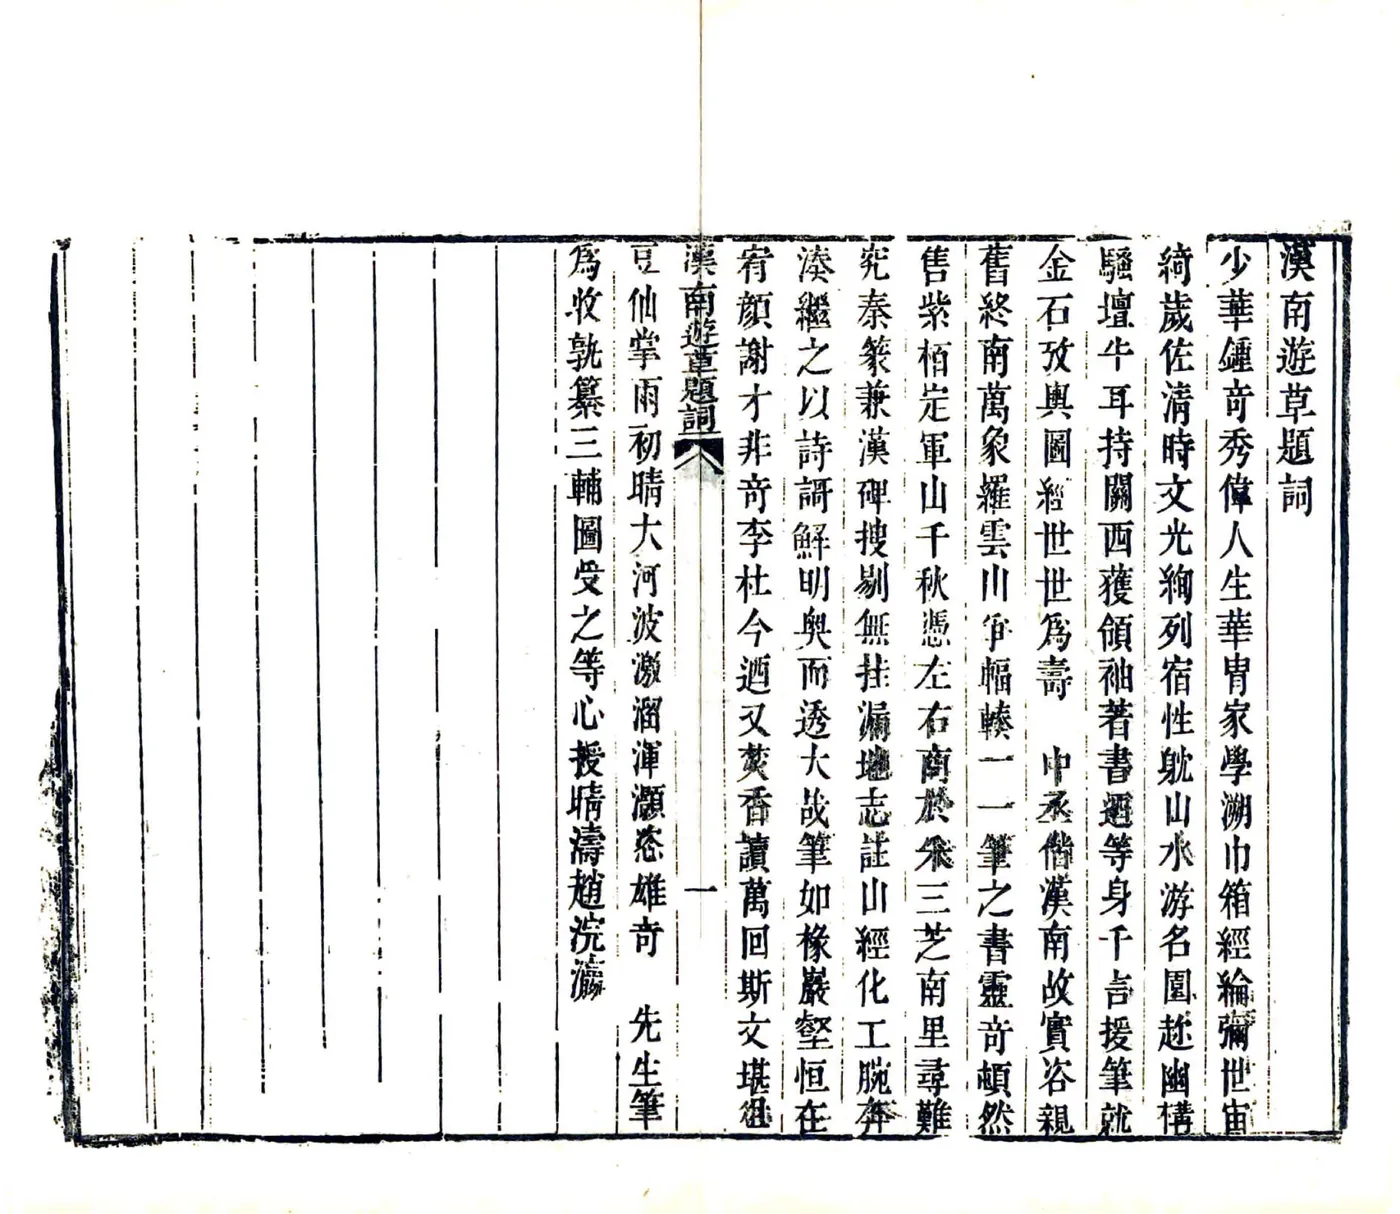 漢南遊草題詞
少華鍾奇秀偉人生華胄家學溯巾箱經綸彌世宙
綺歲佐清時文光絢列宿性躭山水游名園趂幽構
騷壇牛耳持關西獲領袖著書迺等身千言援筆就
金石攷輿圖經世世爲壽　中丞偕漢南故實咨親
舊終南萬象羅雲川爭輻輳一一筆之書靈奇頓然
售紫栢定軍山千秋憑左右商於采三芝南里尋難
究秦篆兼漢碑搜剔無挂漏地志註山經化工腕奔
湊繼之以詩謌解明奧而透大哉筆如椽巖壑恒在
宥顔謝才非奇李杜今迺又焚香讀萬回斯文堪俎
漢南遊草題詞
一
豆仙掌雨初晴大河波激溜渾灝恣雄奇　先生筆
爲收孰纂三輔圖受之等心授晴濤趙浣瀛